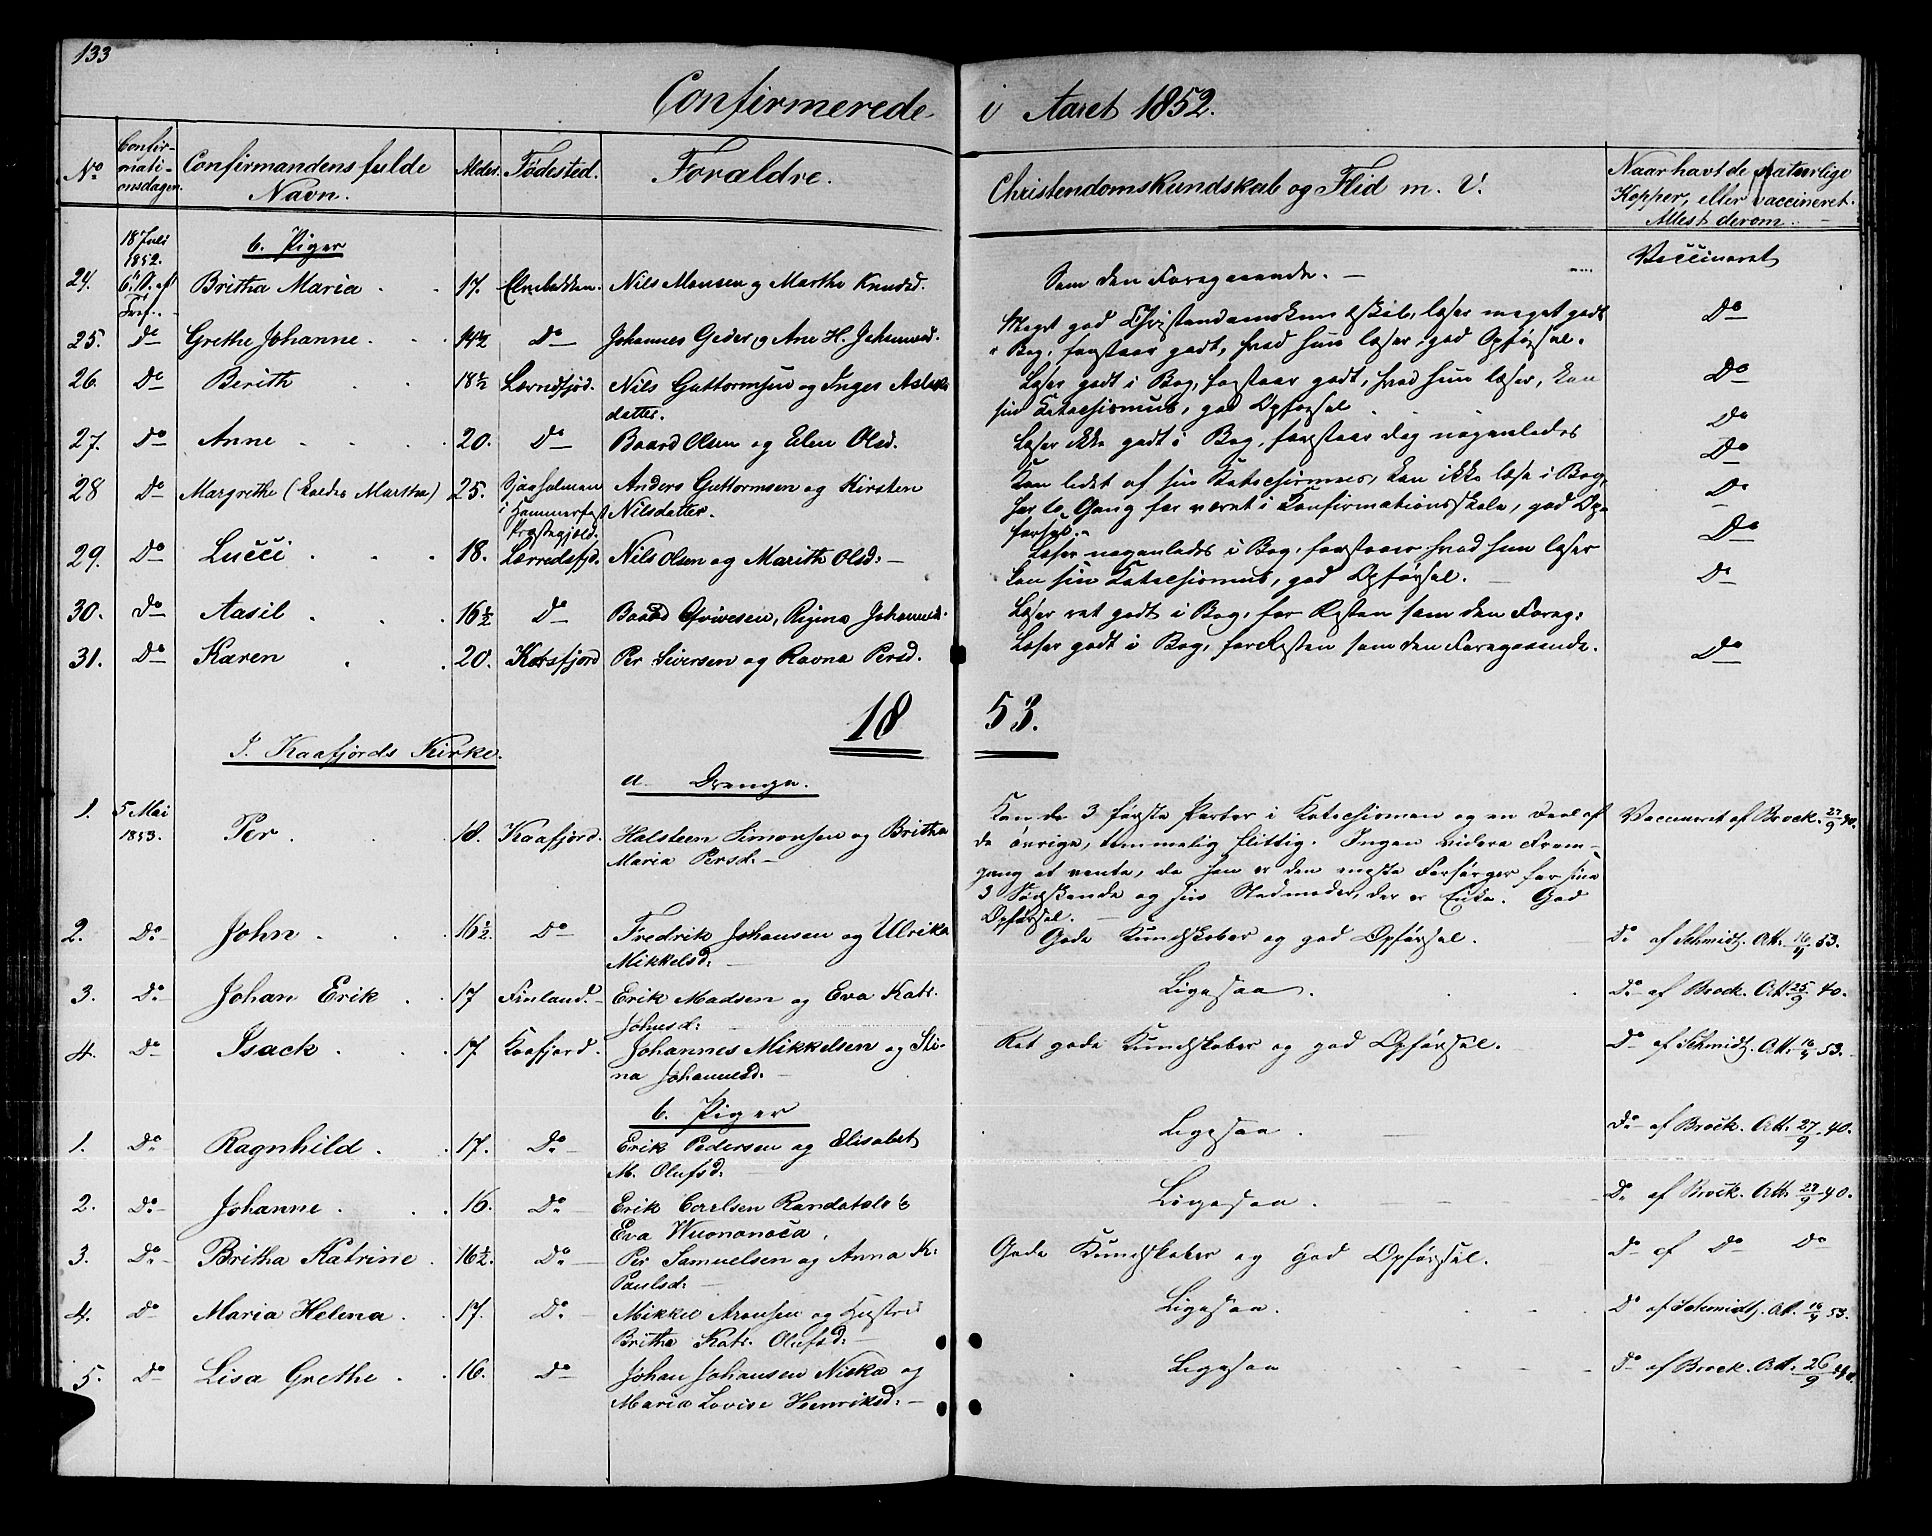 133
Confirmerede i Aaret 1852.
No Confirmationsdagen. Confirmandens fulde Navn. Alder. Fødested. Forældre. Christendomskundskab og Flid m. V. Naar havt de naturlige Kopper, eller vaccineret. Attest derom.
18 Juli 1852. b. Piger
24. Britha Maria 17. Nils Monsen og Marthe Knudsd. Som den Foregaaende. Vaccineret
25. Do Grethe Johanne 14½ Do Johannes og Ane H. Meget god læser meget godt
i Bog, forstaar godt, hvad hun læser, god Opførsel. Do
26. Do Berith 18½ Nils Guttormsen og Inger Aslaksdatter. Læser godt i Bog, forstaar godt, hvad hun læser, kan
sin Katechismus, god Opførsel Do
27. Do Anne 20. Do Baard Olsen og Elen Olsd. Læser ikke godt i Bog, forstaar dog nogenledes Do
28 Do Margrethe (kaldes Martha) 25. i Hammerfest Præstegjæld. Anders Guttormsen og Kirsten Nilsdatter. Kan lidet af sin Katechismus, kan ikke læse i Bog, Do
har to Gang før været i Confirmationsskole, god Opførsel. Do
29. Do Lucci 18. Nils Olsen og Marith Olsd: Læser nogenledes i Bog, forstaaer hvad hun læser Do
kan sin Katechismus, god Opførsel. Do
30. Do Aasil 16½ Do Læser ret godt i Bog, for Resten som den Foreg:
31. Do Karen 20. Korsfjord Per Siversen og Ravna Persd. Læser godt i Bog, for Resten som den Foregaaende. Do
1853.
I. Kaafjords Kirke.
a. Drenge.
1. 5 Mai 1853. Per 18. Kaafjord. Halsteen Simonsen og Britha Maria Persd: Kan de 3 første Parter i Katechismen og en Deel af Vaccineret af Brock. 27/9 40.
de øvrige, temmelig flittig. Ingen videre Fremgang
at vente, da han er den eneste Forsørger for sine
3 Sødskende og sin Stedmoder, der er Enke. God
Opførsel.
2. Do John 16½ Do Fredrik Johansen og Ulrika Mikkelsd: Gode Kundskaber og god Opførsel. Do af Schmidt. Att. 16/4 53.
3. Do Johan Erik 17 Finland. Erik Madsen og Eva Katr. Johnsd: Ligesaa. Do af Brock. Att. 25/9 40.
4. Do Isack 17 Kaafjord. Johannes Mikkelsen og Stina Johannesd: Ret gode Kundskaber og god Opførsel. Do af Schmidt. Att. 16/4 53.
b. Piger
1. Do Ragnhild 17. Do Erik Pedersen og Elisabet M. Olufsd: Ligesaa. Do af Brock. Att. 27/9 40.
2. Do Johanne 16. Do Erik Carlsen Randatalo & Eva Ligesaa. Do af Brock. Att. 27/9 40.
3. Do Britha Katrine 16½. Do Per Samuelsen og Anna K: Paulsd: Gode Kundskaber og god Opførsel. Do af Do Do
4. Do Maria Helena 17. Do Mikkel Aronsen og Hustru Britha Katr. Olufsd: Ligesaa. Do af Schmidt. Att. 16/4 53.
5. Do Lisa Grethe 16. Do Johan Johansen Niska og Maria Lovise Henriksd: Ligesaa Do af Brock. Att. 26/9 40.